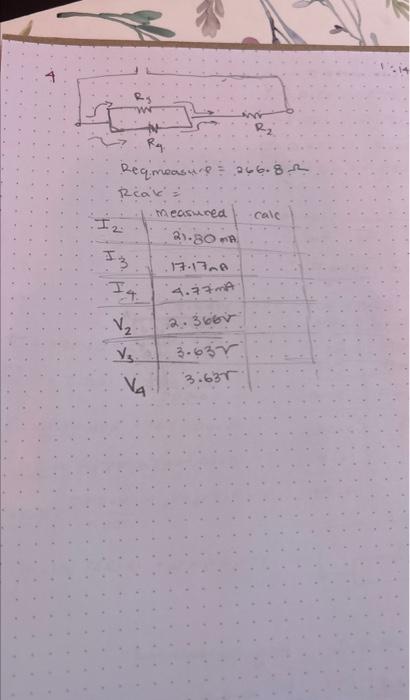 4
R3
R4
R2
Req measure = 266.8 Ω
Rcalc =
measured calc
I2 21.80 mA
I3 17.17mA
I4 4.77mA
V2 2.366V
V3 3.63V
V4 3.63V